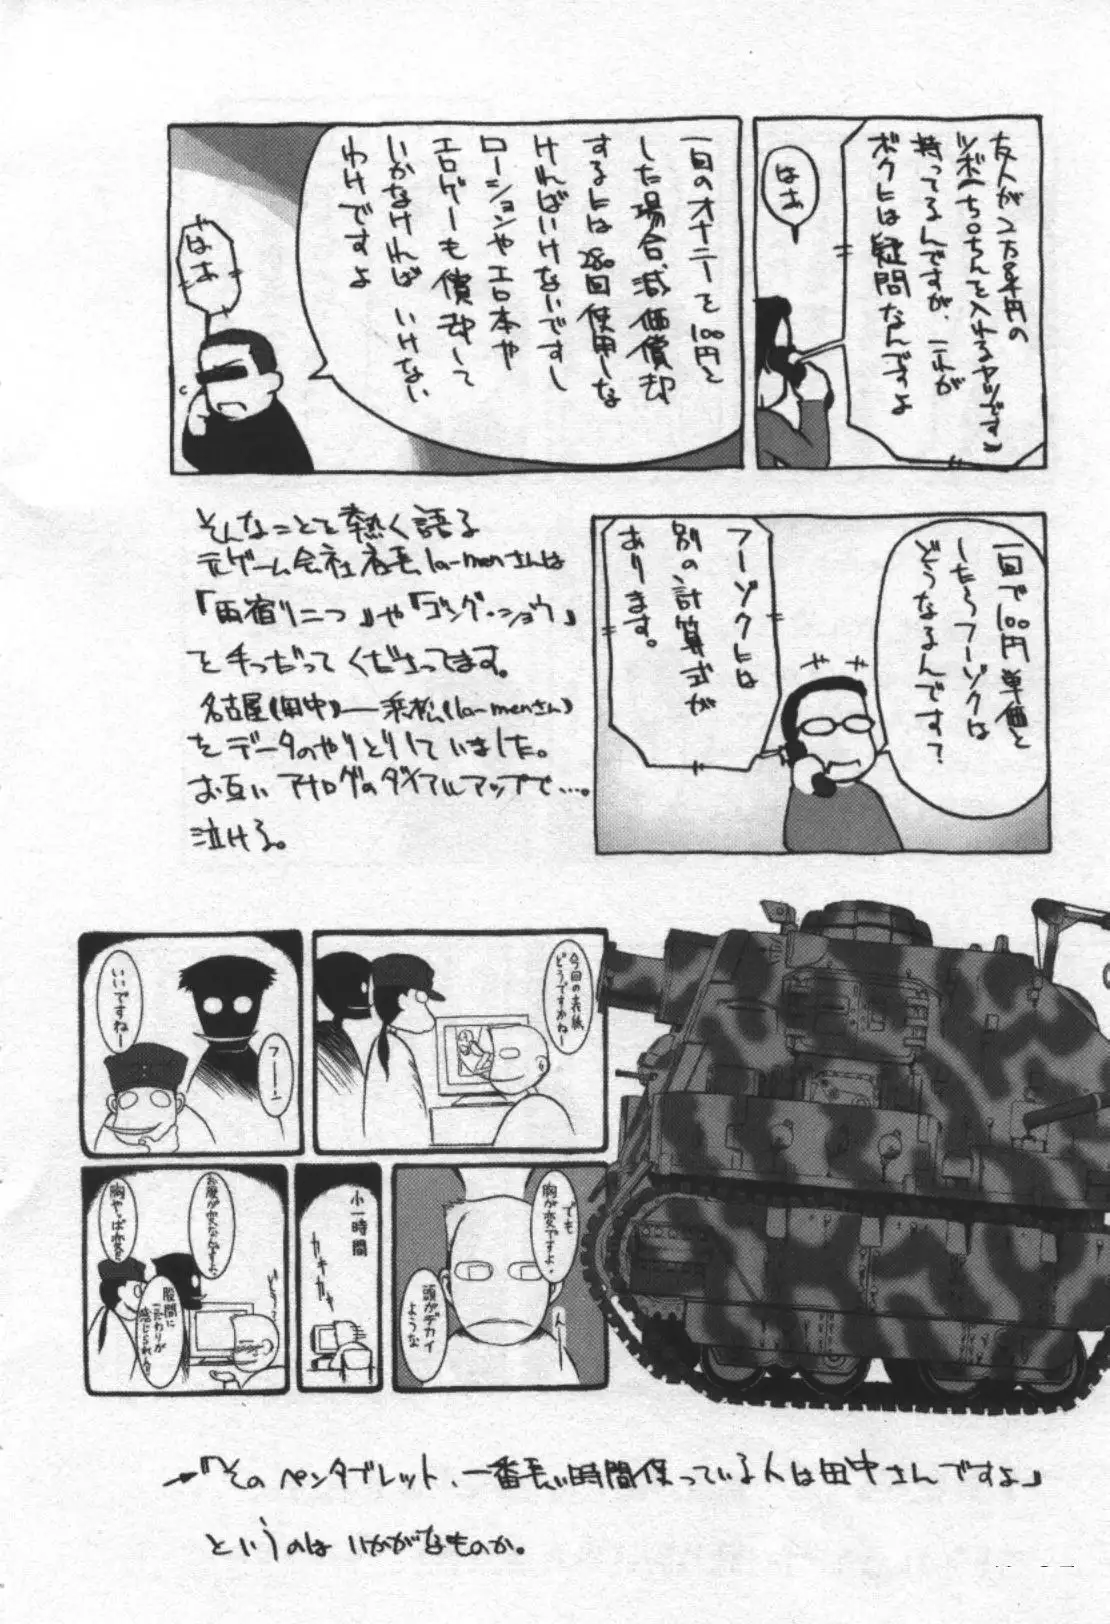 友人が2万8千円の
ツボ(ちんちんを入れるヤツです)
持ってるんですが、それが
ボクには疑問なんですよ
はぁ
一回のオナニーを100円と
した場合減価償却
するには280回使用しな
ければいけないですし
ローションやエロ本や
エロゲーも償却して
いかなければいけない
わけですよ
はぁ
一回で100円単価と
したらフーゾクは
どうなるんです?
フーゾクには
別の計算式が
あります。
そんなことを熱く語る
元ゲーム会社店長la-menさんは
や「ゴング・ショウ」
を手つだってくださってます。
名古屋(田中)―浜松(la-menさん)
をデータのやりとりしていました。
お互いアナログのダイアルアップで…。
泣ける。
今回の表紙
どうですかねー
フーーン
いいですねー
でも
胸が変ですよ。
んー
頭がデカイ
ような
小一時間
カキ
カキ
お腹が変なんですよ。
胸やっぱ変だ
股間に
こだわりが
感じられん!!
→「そのペンタブレット、一番長い時間保っている人は田中さんですよ」
というのはいかがなものか。